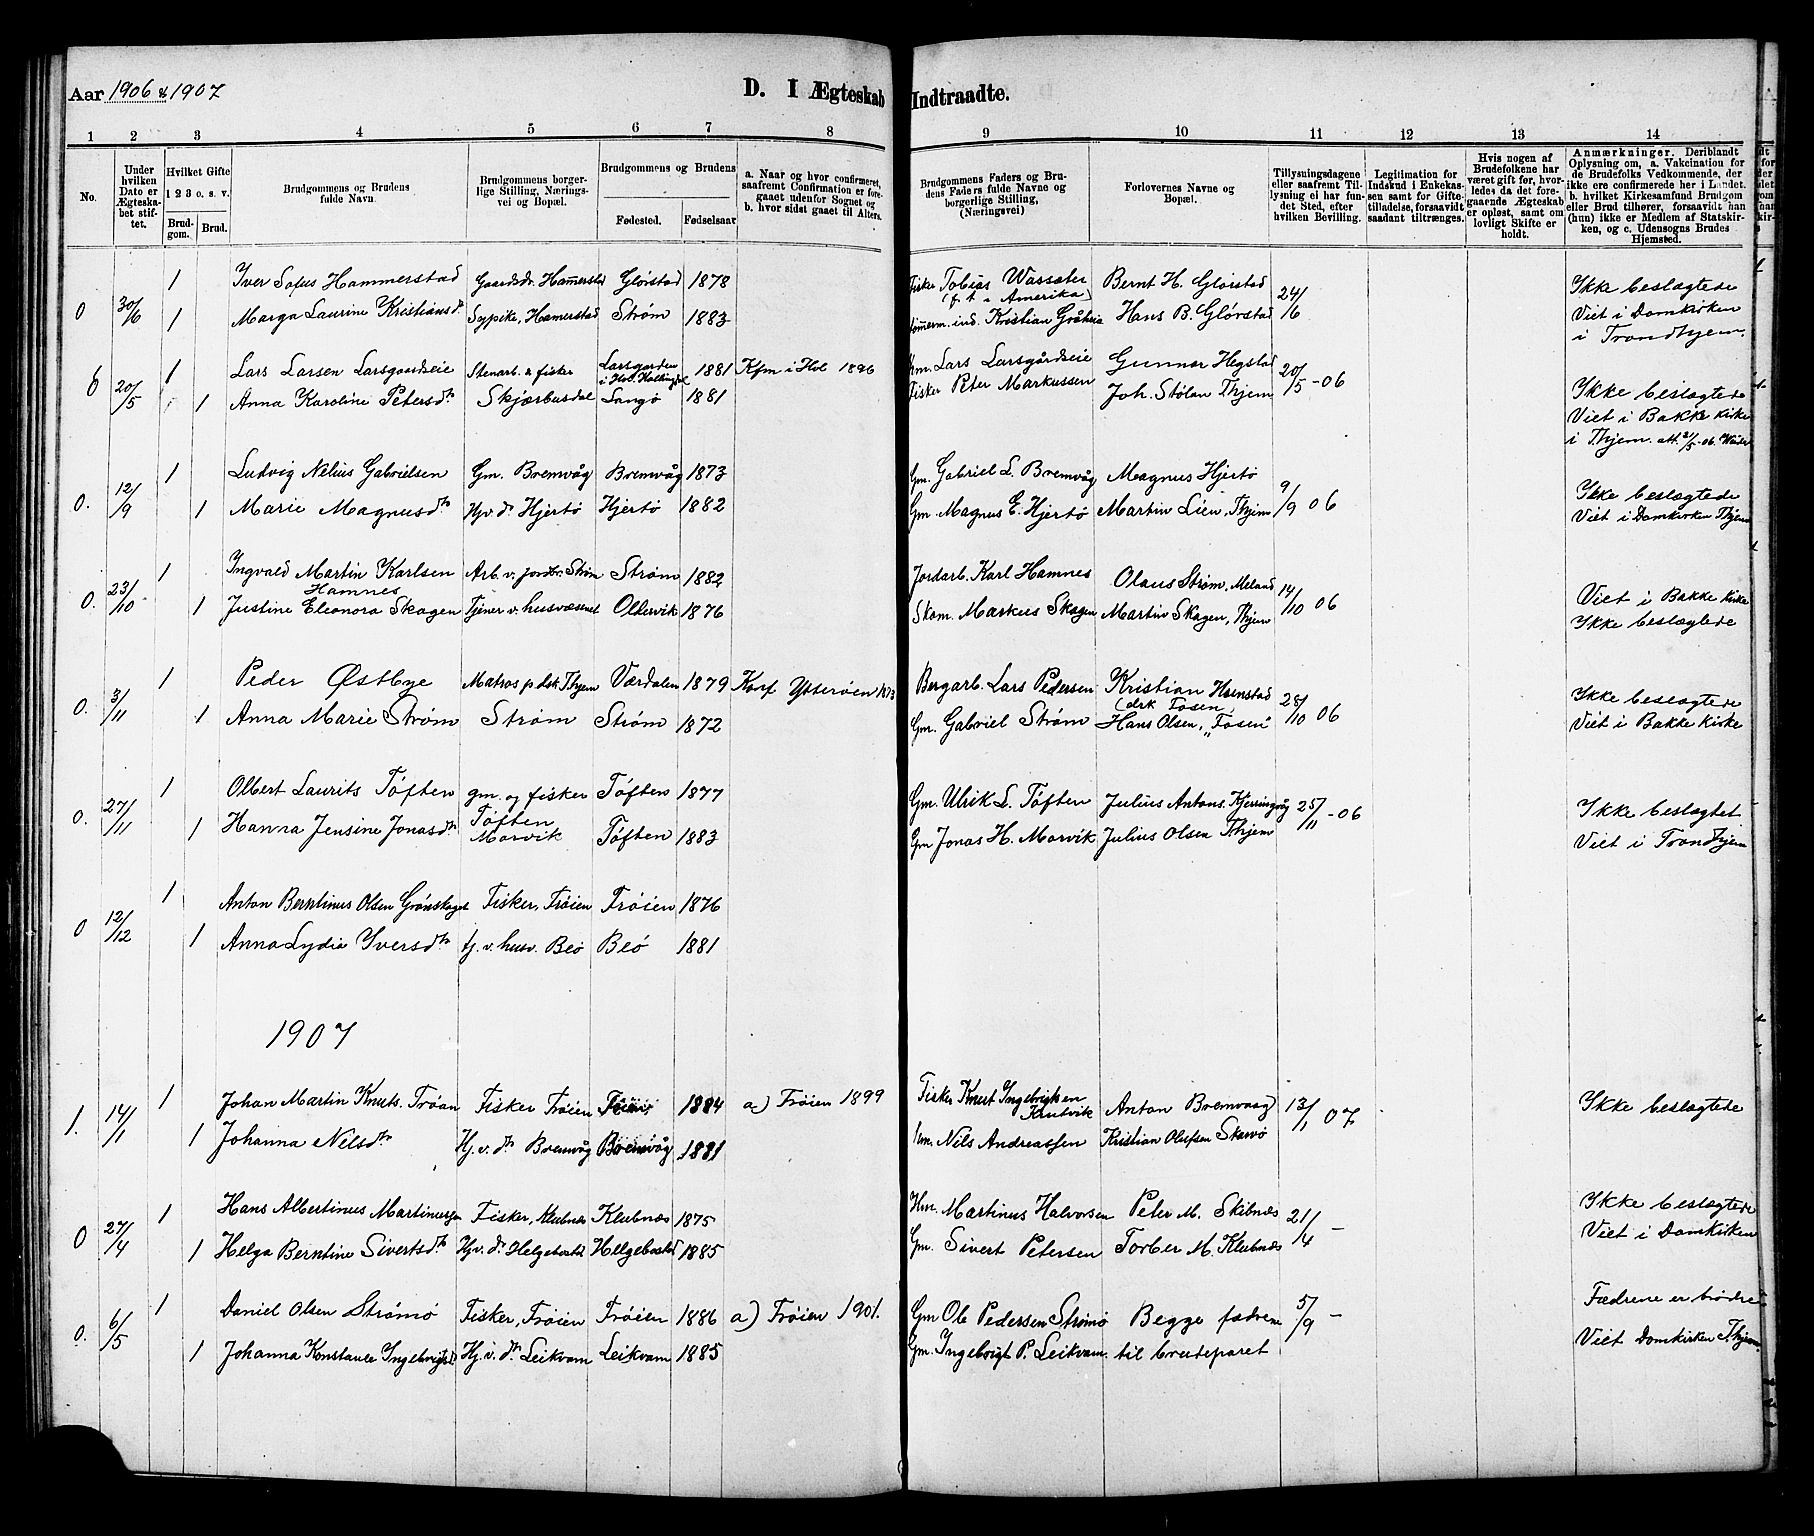 Aar 1906 & 1907 D. I Ægteskab Indtraadte.
1 2 3 4 5 6 7 8 9 10 11 12 13 14
No.
Under hvilken Dato er Ægteskabet stiftet.
Hvilket Gifte 1 2 3 o. s. v.
Brudgom. Brud.
Brudgommens og Brudens fulde Navn.
Brudgommens borgerlige Stilling, Næringsvei og Bopæl.
Brudgommens og Brudens
Fødested. Fødselsaar
a. Naar og hvor confirmeret, saafremt Confirmation er foregaaet udenfor Sognet og b. hvor sidst gaaet til Alters.
Brudgommens Faders og Brudens Faders fulde Navne og borgerlige Stilling, (Næringsvei)
Forlovernes Navne og Bopæl.
Tillysningsdagene eller saafremt Tillysning ei har fundet Sted, efter hvilken Bevilling.
Legitimation for Indskud i Enkekassen samt for Giftetilladelse, forsaavidt saadant tiltrænges.
Hvis nogen af Brudefolkene har været gift før, hvorledes da det foregaaende Ægteskab er opløst, samt om lovligt Skifte er holdt.
Anmærkninger. Deriblandt Oplysning om, a. Vakcination for de Brudefolks Vedkommende, der ikke ere confirmerede her i Landet. b. hvilket Kirkesamfund Brudgom eller Brud tilhører, forsaavidt han (hun) ikke er Medlem af Statskirken, og c. Udensogns Brudes Hjemsted.
0 30/6 1 Iver Sofus Hammerstad Gaardsdr. Hamerstad Glørstad 1878 Fisker Tobias Wassäter (f. t. i Amerika) Bernt H. Glørstad 24/6 Ikke beslægtede
1 Marga Laurine Kristiansdtr Sypike, Hamerstad Strøm 1883 Kristian Hans B. Glørstad Viet i Domkirken
i Trondhjem.
6 20/5 1 Lars Larsen Larsgaardseie Stenarb. & fisker Larsgarden i Hol. 1881 Kfm i Hol 1896 Lars Larsgårdseie Gunnar Hegstad 20/5 -06
1 Anna Karoline Petersdtr Skjærbusdal Langø 1881 Fisker Peter Markussen Joh. Stølan Thjem Ikke beslægtede
Viet i Bakke Kirke
i Thjem. att. 21/5-06.
0. 12/9 1 Ludvig Nelius Gabrielsen Gm. Bremvåg Bremvåg 1873 Gm. Gabriel L. Bremvåg Magnus Hjertø 9/9 06 Ikke beslægtede
1 Marie Magnusdtr Hjv. dtr Hjertø Hjertø 1882 Gm. Magnus E. Hjertø Martin Lien, Thjem Viet i Domkirken Thjem
0. 23/10 1 Ingvald Martin Karlsen Hamnes Arb. v. jordbr. Strøm Strøm 1882 Jordarb. Karl Hamnes Olaus Strøm, Meland 14/10 06 Viet i Bakke Kirke
1 Justine Eleonora Skagen Tjener v. husvæsenet Ollervik 1876 Skom. Markus Skagen Martin Skagen, Thjem Ikke beslægtede
0. 3/11 1 Peder Østbye Matros p. dsk Thjem Værdalen 1879 Konf Ytterøen Bergarb. Lars Pedersen Kristian Hamstad (drk Fosen) 28/10 06 Ikke beslægtede
1 Anna Marie Strøm Strøm Strøm 1872 Gm. Gabriel Strøm Hans Olsen, "Fosen" Viet i Bakke Kirke
0. 27/11 1 Olbert Laurits Tøften gm. og fisker Tøften Tøften 1877 Gm. Ulrik L. Tøften Julius Antons. Kjerringvåg 25/11 -06 Ikke beslægtet
1 Hanna Jensine Jonasdtr Morvik Tøften 1883 Gm Jonas H. Morvik Julius Olsen Thjem Viet i Trondhjem
0 12/12 1 Anton Berntinus Olsen Grønskaget Fisker, Frøien Frøien 1876
1 Anna Lydia Iversdtr tj. v. husv. Beø Beø 1881
1907
1. 14/1 1 Johan Martin Knuts. Frøan Fisker Frøien Frøien 1884 a) Frøien 1899 Fisker Knut Ingebrigtsen Knutvik Anton Bremvaag 13/1 07 Ikke beslægtede
1 Johanna Nilsdtr Hj. v. dtr Bremvåg Bremvåg 1881 Nils Andreassen Kristian Olufsen Skarvø
0 27/4 1 Hans Albertinus Martinussen Fisker, Klubnæs Klubnæs 1875 Hm. Martinus Halvorsen Peter M. Skibnæs 21/4 - Ikke beslægtede
1 Helga Berntine Sivertsdtr Hjv. dtr Helgebostad Helgebostad 1885 Gm. Sivert Petersen Torber M. Klubnæs Viet i Domkirken
0. 6/5 1 Daniel Olsen Strømø Fisker, Frøien Frøien 1886 a) Frøien 1901. Gm Ole Pedersen Strømø Begge fædrene 5/9 - Fædrene er brødre
1 Johanna Konstanse Ingebrigtsd Hj. v. dtr Leikvam Leikvam 1885 Gm. Ingebrigt P. Leikvam. til brudeparet Viet Domkirken Thjem